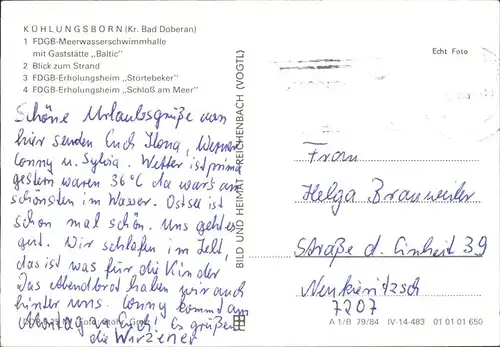 KÜHLUNGSBORN (Kr. Bad Doberan)
1 FDGB-Meerwasserschwimmhalle
mit Gaststätte „Baltic"
2 Blick zum Strand
3 FDGB-Erholungsheim „Stortebeker"
4 FDGB-Erholungsheim „Schloß am Meer"
Echt Foto
Schöne Urlaubsgrüße von
hier senden Euch Ilona, Werner
Conny u. Sylvia. Wetter ist prima
gestern waren 36°C da war's am
schönsten im Wasser. Ostsee ist
schon mal schön. Uns geht es
gut. Wir schlafen im Zelt,
das ist was für die Kinder
Das Abendbrot haben wir auch
hinter uns. Conny kommt am
Montag zu Euch! Es grüßen
die Wurzener
BILD UND HEIMAT REICHENBACH (VOGTL)
Frau
Helga Brauweiler
Straße d. Einheit 39
Neukieritzsch
7207
A 1/B 79/84 IV-14-483 01 01 01 650